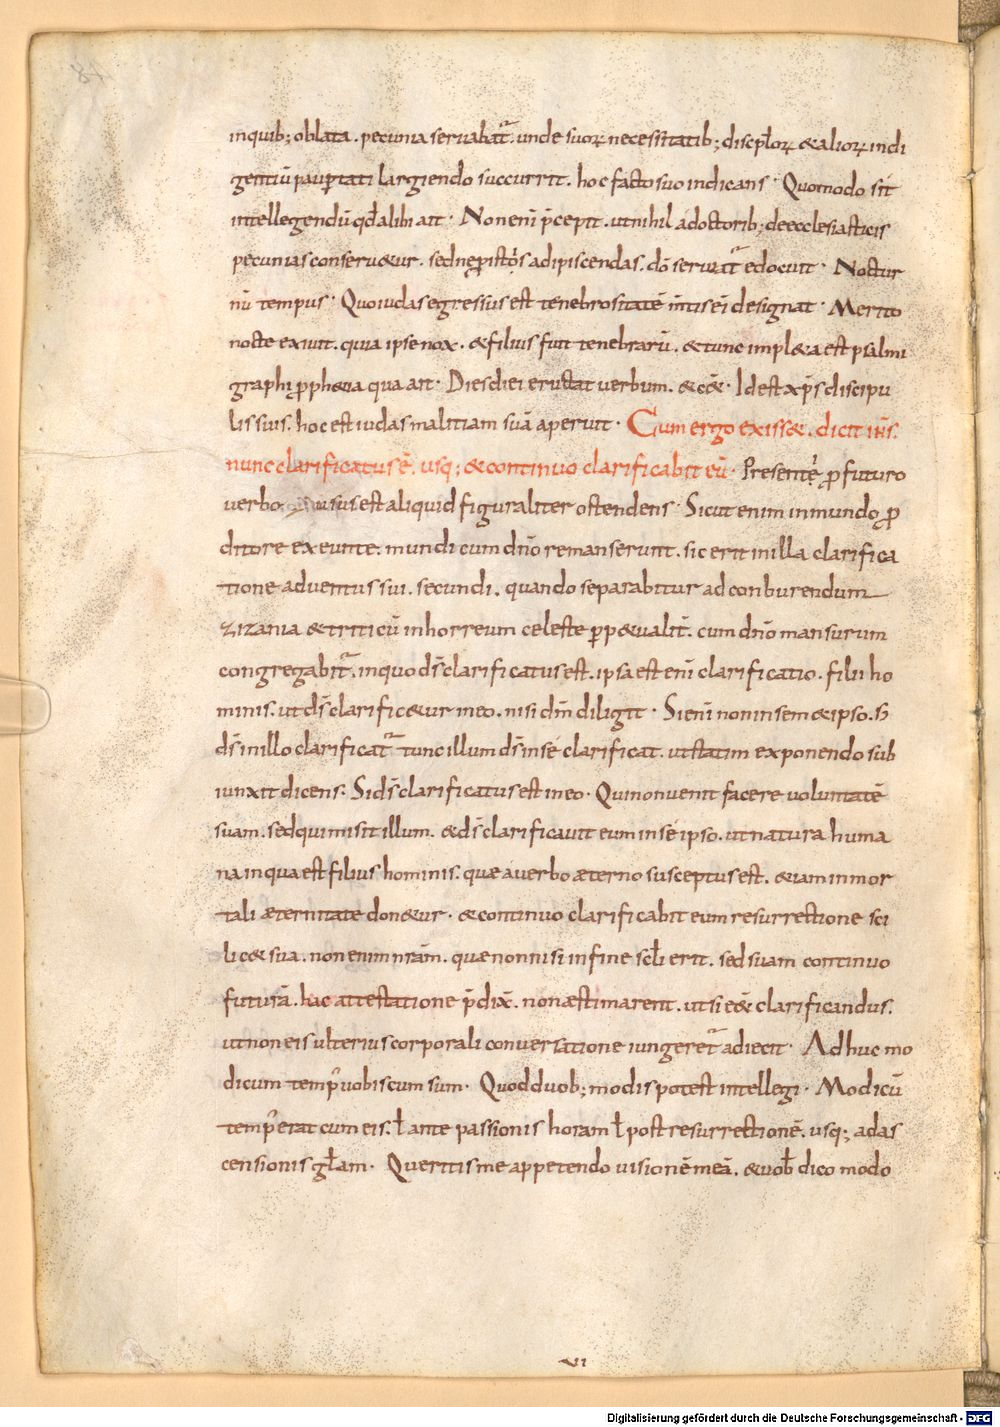 inquib; oblata . pecunia seruabat̃. unde suoꝝ necessitatib; discipl̃oꝝ &alioꝝ indi
gentiũ pauꝑtati largiendo succurrit. hoc facto suo indicans · Quomodo sit
intellegendũ qđ alibi ait · Non enĩ p̃cepit. ut nihil a doctorib; de ecclesiasticis
pecunias conseru&ur. sed ne ꝓ istis adipiscendas. docuit · Noctur
nũ tempus · Quo iudas egressus est tenebrositatẽ mentis ei designat · Merito
nocte exiuit. quia ipse nox. & filius fuit tenebrarũ. & tunc impl&a est psalmi
graphi ꝓph&ia qua ait · Dies diei eructat uerbum. & c&̃ · Id est xp̃s discipu
lis suis. hoc est iudas malitiam suã aperuit · Cum ergo exiss&. dicit ih̃s.
nunc clarificatus ẽ. usq; & continuo clarificabit eũ · Presente ꝓ futuro
uerbo usus est aliquid figuraliter ostendens · Sicut enim in mundo ꝓ
ditore exeunte. mundi cum dñ̃o remanserunt. sic erit in illa clarifica
tione aduentus sui. secundi. quando separabitur ad conburendum
zizania & triticũ in horreum celeste ꝑp&ualit̃. cum dño mansurum
congregabit̃. in quo d̃s clarificatus est. ipsa est enĩ clarificatio. filii ho
minis. ut d̃s clarific&ur in eo. nisi dm̃ diligit · Si enĩ non in sem&ipso. s
d̃s in illo clarificat̃ tunc illum d̃s in se clarificat. ut statim exponendo sub
iunxit dicens. Si d̃s clarificatus est in eo · Qui non uenit facere uoluntatẽ
suam. sed qui misit illum. & d̃s clarificauit eum in se ipso. ut natura huma
na in qua est filius hominis. quæ a uerbo æterno suscepta est. &iam inmor
tali æternitate don&ur. & continuo clarificabit eum resurrectione sci
lic& sua. non enim nr̃am. quæ non nisi in fine scl̃i erit. sed suam continuo
futurã. hac attestatione p̃dix̃. non æstimarent. ut si e&̃ clarificandus.
ut non eis ulterius corporali conuersatione iungeret̃ adiecit · Adhuc mo
dicum temp̃ uobiscum sum · Quod duob; modis potest intellegi · Modicũ
temp̃ erat cum eis. ł ante passionis horam ł post resurrectionẽ. usq; ad as
censionis gl̃am · Queritis me appetendo uisionẽ meã. & uob̃ dico modo
VI
Digitalisierung gefördert durch die Deutsche Forschungsgemeinschaft - DFG